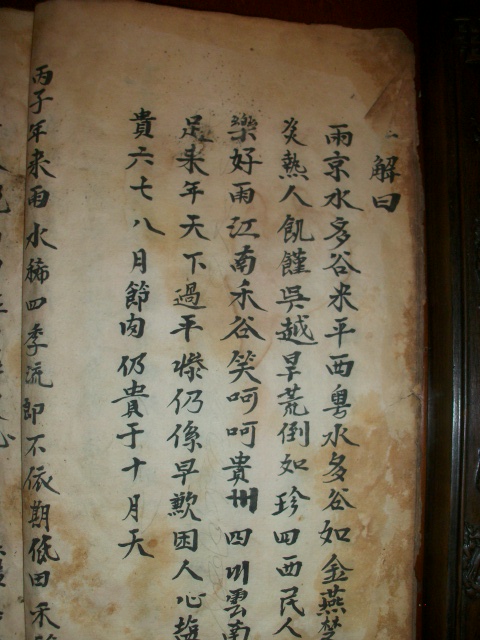 解曰
兩京水多谷米平西粵水多谷如金燕楚
炎熱人飢饉吳越旱荒倒如珍田西民人
樂好雨江南禾谷笑呵呵貴州四川雲南
足来年天下過平 仍係旱歉困人心
貴六七八月節肉仍貴于十月天
丙子年来雨水 四季流郎不依期低田禾